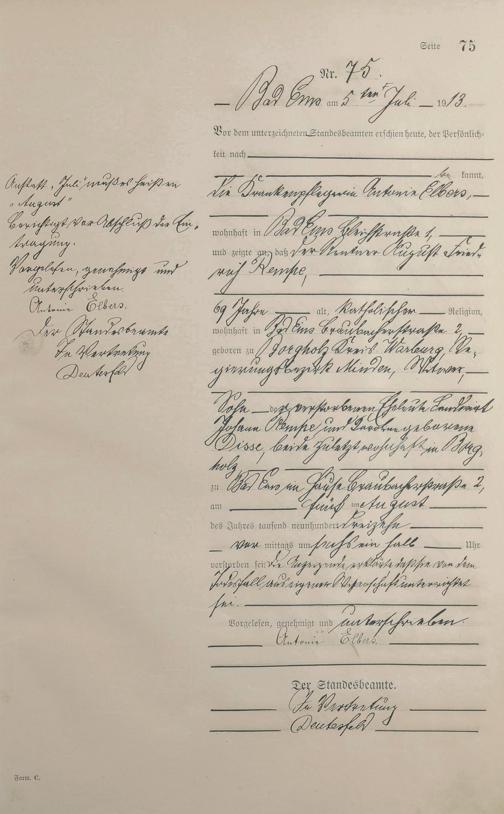 Seite 75
Nr. 75.
Bad Ems am 5ten Juli 1913.
Vor dem unterzeichneten Standesbeamten erschien heute, der Persönlich-
keit nach
kannt,
die Krankenpflegerin Antonie Elbers,
wohnhaft in Bad Ems Bleichstraße 1,
und zeigte an, daß der Rentner August Fried-
rich Kempe,
69 Jahre alt, katholischer Religion,
wohnhaft in Bad Ems Braubacherstraße 2,
geboren zu Borgholz Kreis Warburg, Re-
gierungsbezirk Minden, Witwer,
Sohn der verstorbenen Eheleute Landwirt
Johann Kempe und geborene
Disse, beide zuletzt wohnhaft in Borg-
holz
zu Bad Ems im Hause Braubacherstraße 2,
am fünf August
des Jahres tausend neunhundert dreizehn
vor mittags um sechs ein halb Uhr
verstorben sei. Die Anzeigende erklärte daß sie von dem
Todesfall aus eigener Wissenschaft unterrichtet
sei.
Vorgelesen, genehmigt und unterschrieben.
Antonie Elbers.
Der Standesbeamte.
In Vertretung
Anstatt „Juli" muß es heißen
„August"
Berichtigt vor Abschluß der Ein-
tragung.
Vorgelesen, genehmigt und
unterschrieben.
Antonie Elbers.
Der Standesbeamte
In Vertretung
Form. C.